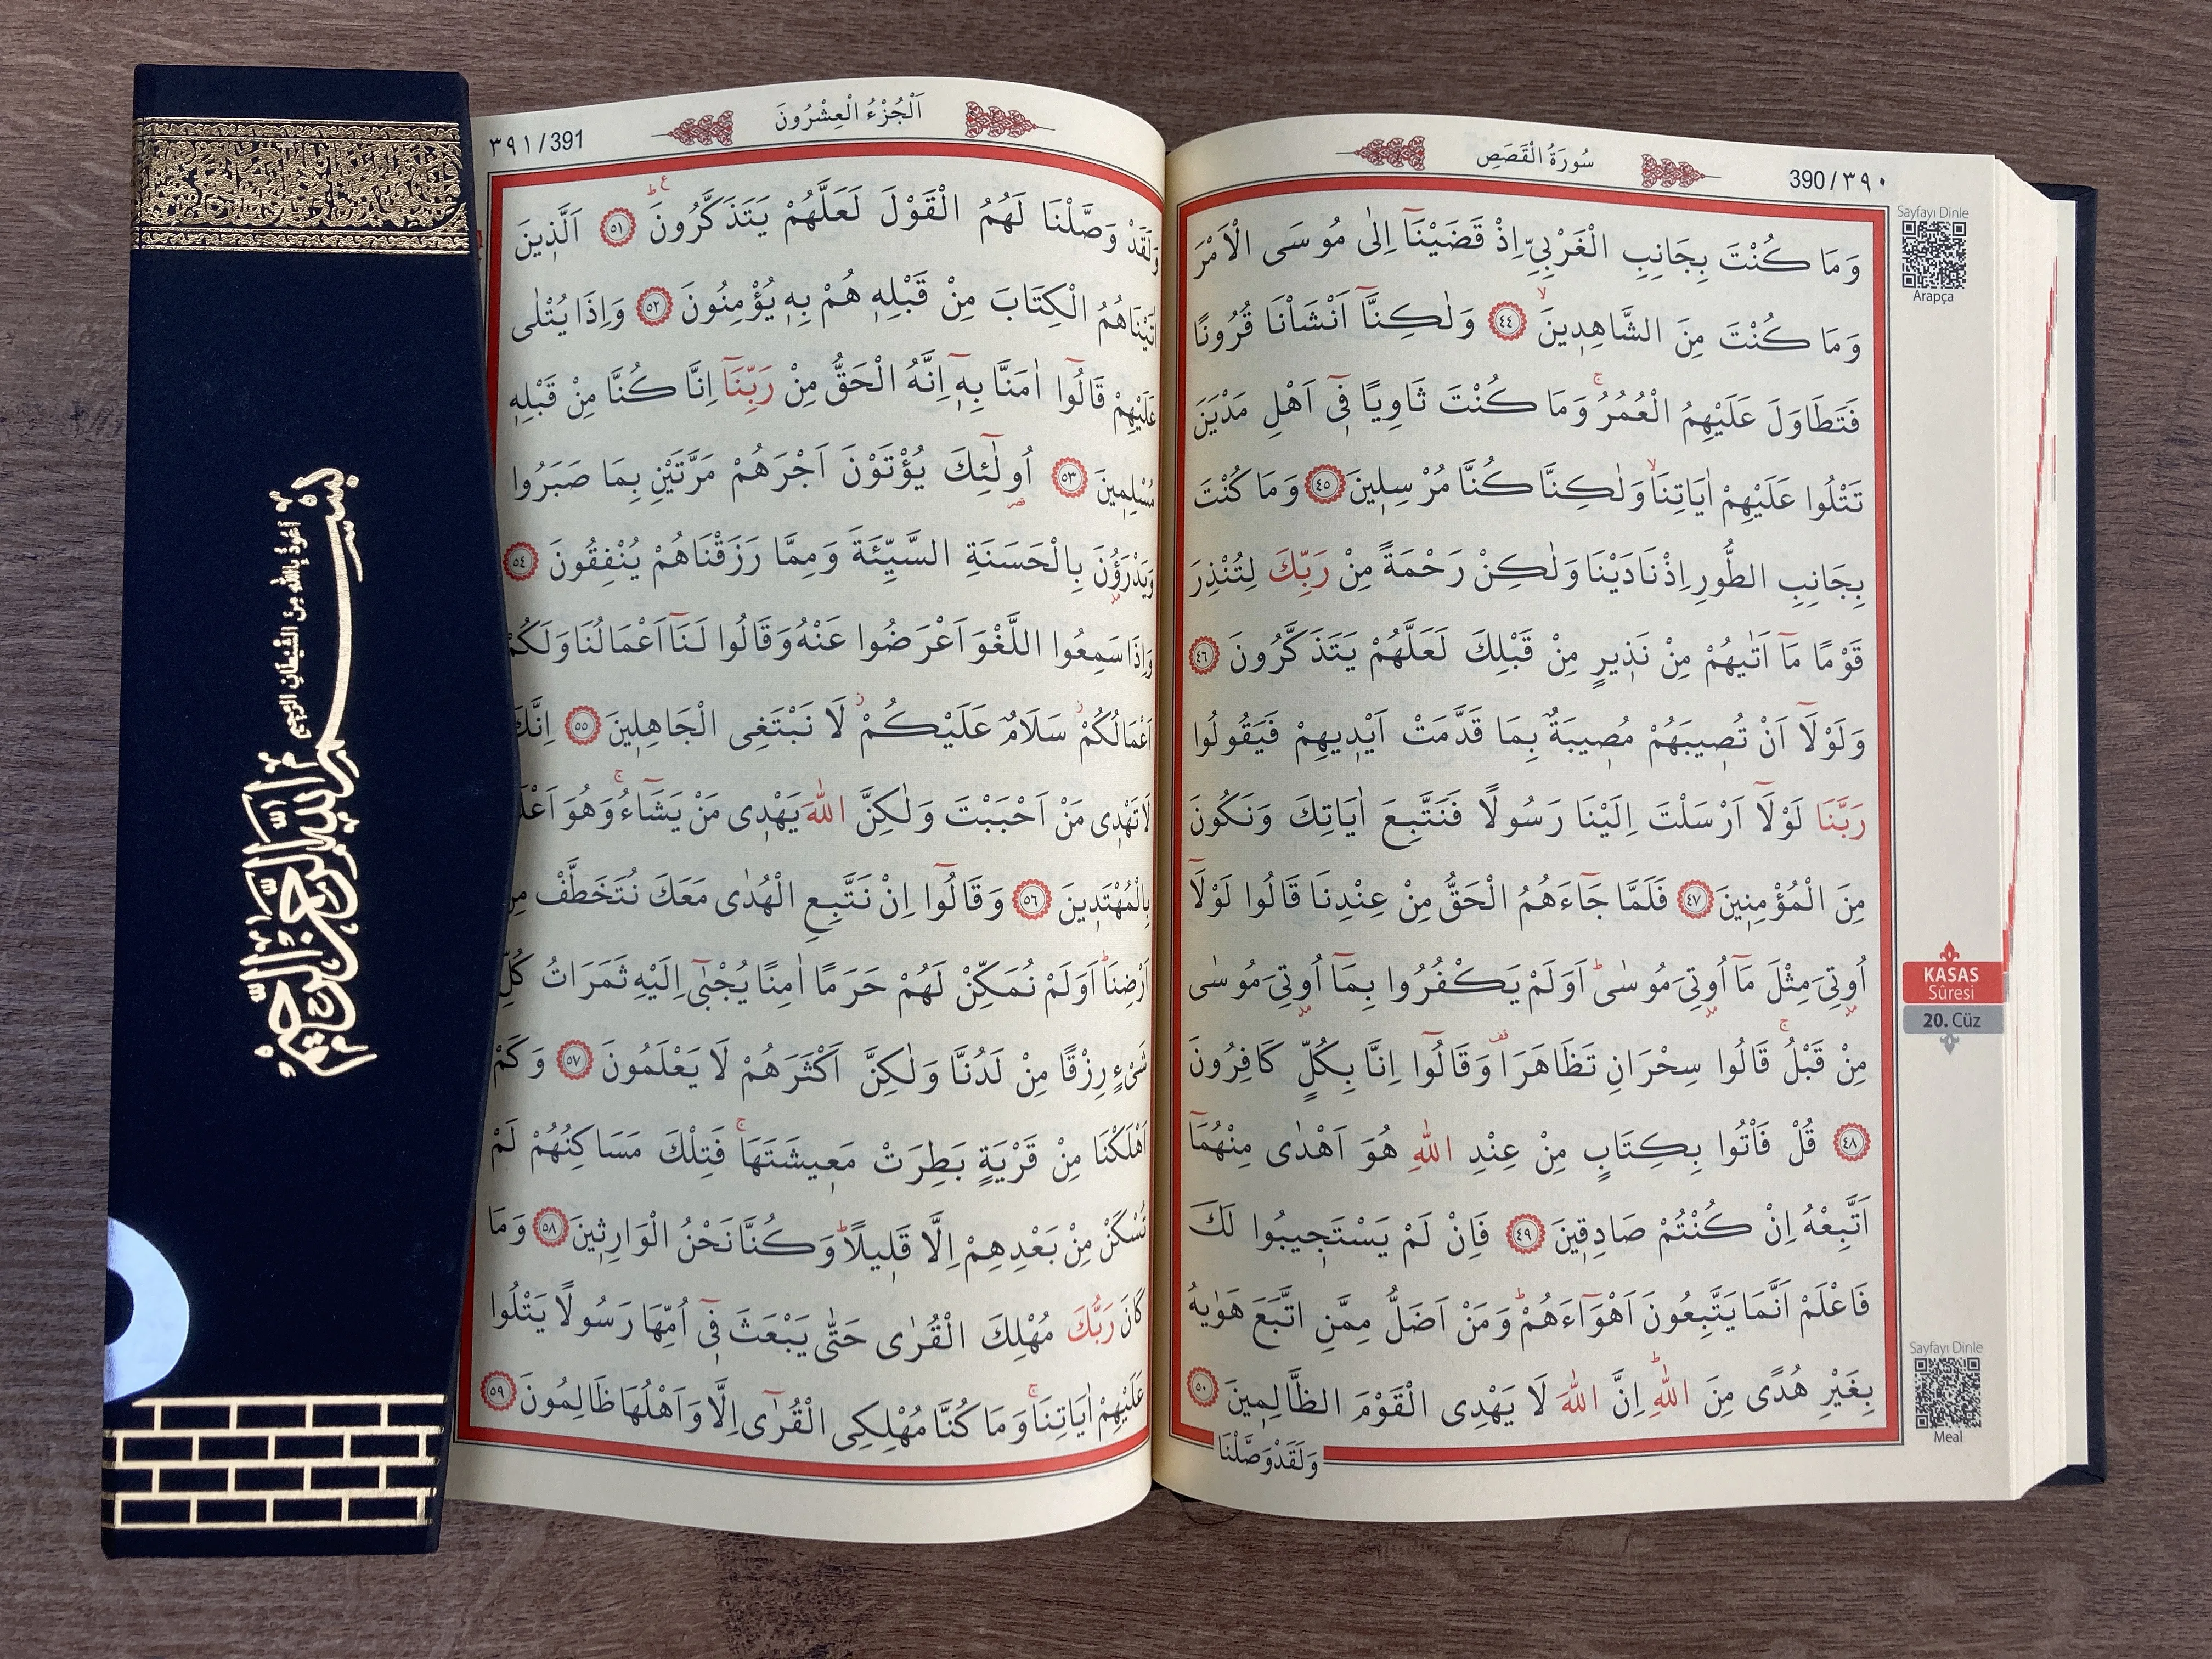 سُورَةُ الْقَصَصِ
390/٣٩٠
وَمَا كُنْتَ بِجَانِبِ الْغَرْبِيِّ اِذْ قَضَيْنَٓا اِلٰى مُوسَى الْاَمْرَ
وَمَا كُنْتَ مِنَ الشَّاهِد۪ينَۙ ٤٤ وَلٰكِنَّٓا اَنْشَأْنَا قُرُونًا
فَتَطَاوَلَ عَلَيْهِمُ الْعُمُرُۚ وَمَا كُنْتَ ثَاوِيًا ف۪ٓي اَهْلِ مَدْيَنَ
تَتْلُوا عَلَيْهِمْ اٰيَاتِنَاۙ وَلٰكِنَّا كُنَّا مُرْسِل۪ينَ ٤٥ وَمَا كُنْتَ
بِجَانِبِ الطُّورِ اِذْ نَادَيْنَا وَلٰكِنْ رَحْمَةً مِنْ رَبِّكَ لِتُنْذِرَ
قَوْمًا مَٓا اَتٰيهُمْ مِنْ نَذ۪يرٍ مِنْ قَبْلِكَ لَعَلَّهُمْ يَتَذَكَّرُونَ ٤٦
وَلَوْلَٓا اَنْ تُص۪يبَهُمْ مُص۪يبَةٌ بِمَا قَدَّمَتْ اَيْد۪يهِمْ فَيَقُولُوا
رَبَّنَا لَوْلَٓا اَرْسَلْتَ اِلَيْنَا رَسُولًا فَنَتَّبِعَ اٰيَاتِكَ وَنَكُونَ
مِنَ الْمُؤْمِن۪ينَ ٤٧ فَلَمَّا جَٓاءَهُمُ الْحَقُّ مِنْ عِنْدِنَا قَالُوا لَوْلَٓا
اُو۫تِيَ مِثْلَ مَٓا اُو۫تِيَ مُوسٰىۜ اَوَلَمْ يَكْفُرُوا بِمَٓا اُو۫تِيَ مُوسٰى
مِنْ قَبْلُۚ قَالُوا سِحْرَانِ تَظَاهَرَا۠ وَقَالُٓوا اِنَّا بِكُلٍّ كَافِرُونَ
٤٨ قُلْ فَأْتُوا بِكِتَابٍ مِنْ عِنْدِ اللّٰهِ هُوَ اَهْدٰى مِنْهُمَٓا
اَتَّبِعْهُ اِنْ كُنْتُمْ صَادِق۪ينَ ٤٩ فَاِنْ لَمْ يَسْتَج۪يبُوا لَكَ
فَاعْلَمْ اَنَّمَا يَتَّبِعُونَ اَهْوَٓاءَهُمْۜ وَمَنْ اَضَلُّ مِمَّنِ اتَّبَعَ هَوٰيهُ
بِغَيْرِ هُدًى مِنَ اللّٰهِۜ اِنَّ اللّٰهَ لَا يَهْدِي الْقَوْمَ الظَّالِم۪ينَ ٥٠
وَلَقَدْ وَصَّلْنَا
Sayfayı Dinle
Arapça
KASAS
Sûresi
20. Cüz
Sayfayı Dinle
Meal
٣٩١/391
اَلْجُزْءُ الْعِشْرُونَ
وَلَقَدْ وَصَّلْنَا لَهُمُ الْقَوْلَ لَعَلَّهُمْ يَتَذَكَّرُونَۜ ع ٥١ اَلَّذ۪ينَ
اٰتَيْنَاهُمُ الْكِتَابَ مِنْ قَبْلِه۪ هُمْ بِه۪ يُؤْمِنُونَ ٥٢ وَاِذَا يُتْلٰى
عَلَيْهِمْ قَالُٓوا اٰمَنَّا بِه۪ٓ اِنَّهُ الْحَقُّ مِنْ رَبِّنَٓا اِنَّا كُنَّا مِنْ قَبْلِه۪
مُسْلِم۪ينَ ٥٣ اُو۬لٰٓئِكَ يُؤْتَوْنَ اَجْرَهُمْ مَرَّتَيْنِ بِمَا صَبَرُوا
وَيَدْرَؤُ۫نَ بِالْحَسَنَةِ السَّيِّئَةَ وَمِمَّا رَزَقْنَاهُمْ يُنْفِقُونَ ٥٤
وَاِذَا سَمِعُوا اللَّغْوَ اَعْرَضُوا عَنْهُ وَقَالُوا لَنَٓا اَعْمَالُنَا وَلَكُمْ
اَعْمَالُكُمْۘ سَلَامٌ عَلَيْكُمْۘ لَا نَبْتَغِي الْجَاهِل۪ينَ ٥٥ اِنَّكَ
لَا تَهْد۪ي مَنْ اَحْبَبْتَ وَلٰكِنَّ اللّٰهَ يَهْد۪ي مَنْ يَشَٓاءُۚ وَهُوَ
بِالْمُهْتَد۪ينَ ٥٦ وَقَالُٓوا اِنْ نَتَّبِعِ الْهُدٰى مَعَكَ نُتَخَطَّفْ مِنْ
اَرْضِنَاۜ اَوَلَمْ نُمَكِّنْ لَهُمْ حَرَمًا اٰمِنًا يُجْبٰٓى اِلَيْهِ ثَمَرَاتُ كُلِّ
شَيْءٍ رِزْقًا مِنْ لَدُنَّا وَلٰكِنَّ اَكْثَرَهُمْ لَا يَعْلَمُونَ ٥٧ وَكَمْ
اَهْلَكْنَا مِنْ قَرْيَةٍ بَطِرَتْ مَع۪يشَتَهَاۚ فَتِلْكَ مَسَاكِنُهُمْ لَمْ
تُسْكَنْ مِنْ بَعْدِهِمْ اِلَّا قَل۪يلًاۜ وَكُنَّا نَحْنُ الْوَارِث۪ينَ ٥٨ وَمَا
كَانَ رَبُّكَ مُهْلِكَ الْقُرٰى حَتّٰى يَبْعَثَ ف۪ٓي اُمِّهَا رَسُولًا يَتْلُوا
عَلَيْهِمْ اٰيَاتِنَاۚ وَمَا كُنَّا مُهْلِكِي الْقُرٰٓى اِلَّا وَاَهْلُهَا ظَالِمُونَ ٥٩
اَعُوذُ بِاللّٰهِ مِنَ الشَّيْطَانِ الرَّجِيمِ
بِسْمِ اللّٰهِ الرَّحْمٰنِ الرَّحِيمِ